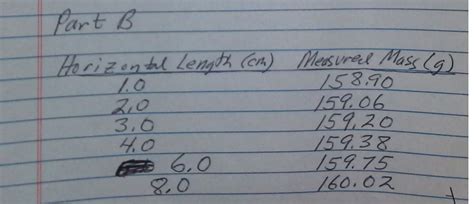 Part B
Horizontal Length (cm) Measured Mass (g)
1.0 158.90
2.0 159.06
3.0 159.20
4.0 159.38
6.0 159.75
8.0 160.02